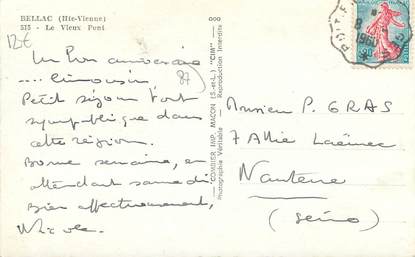 BELLAC (Hte-Vienne)
515 - Le Vieux Pont
12€
Un bon anniversaire
.... limousin
87
Petit séjour fort
sympathique dans
cette région.
Bonne semaine, en
attendant samedi
Bien affectueusement,
Nicole.
"CIM"
COMBIER IMP. MACON (S.-et-L.)
Photographie Véritable - Reproduction Interdite
8
1960
Monsieur P. GRAS
7 Allée Laënnec
Nanterre
(Seine)